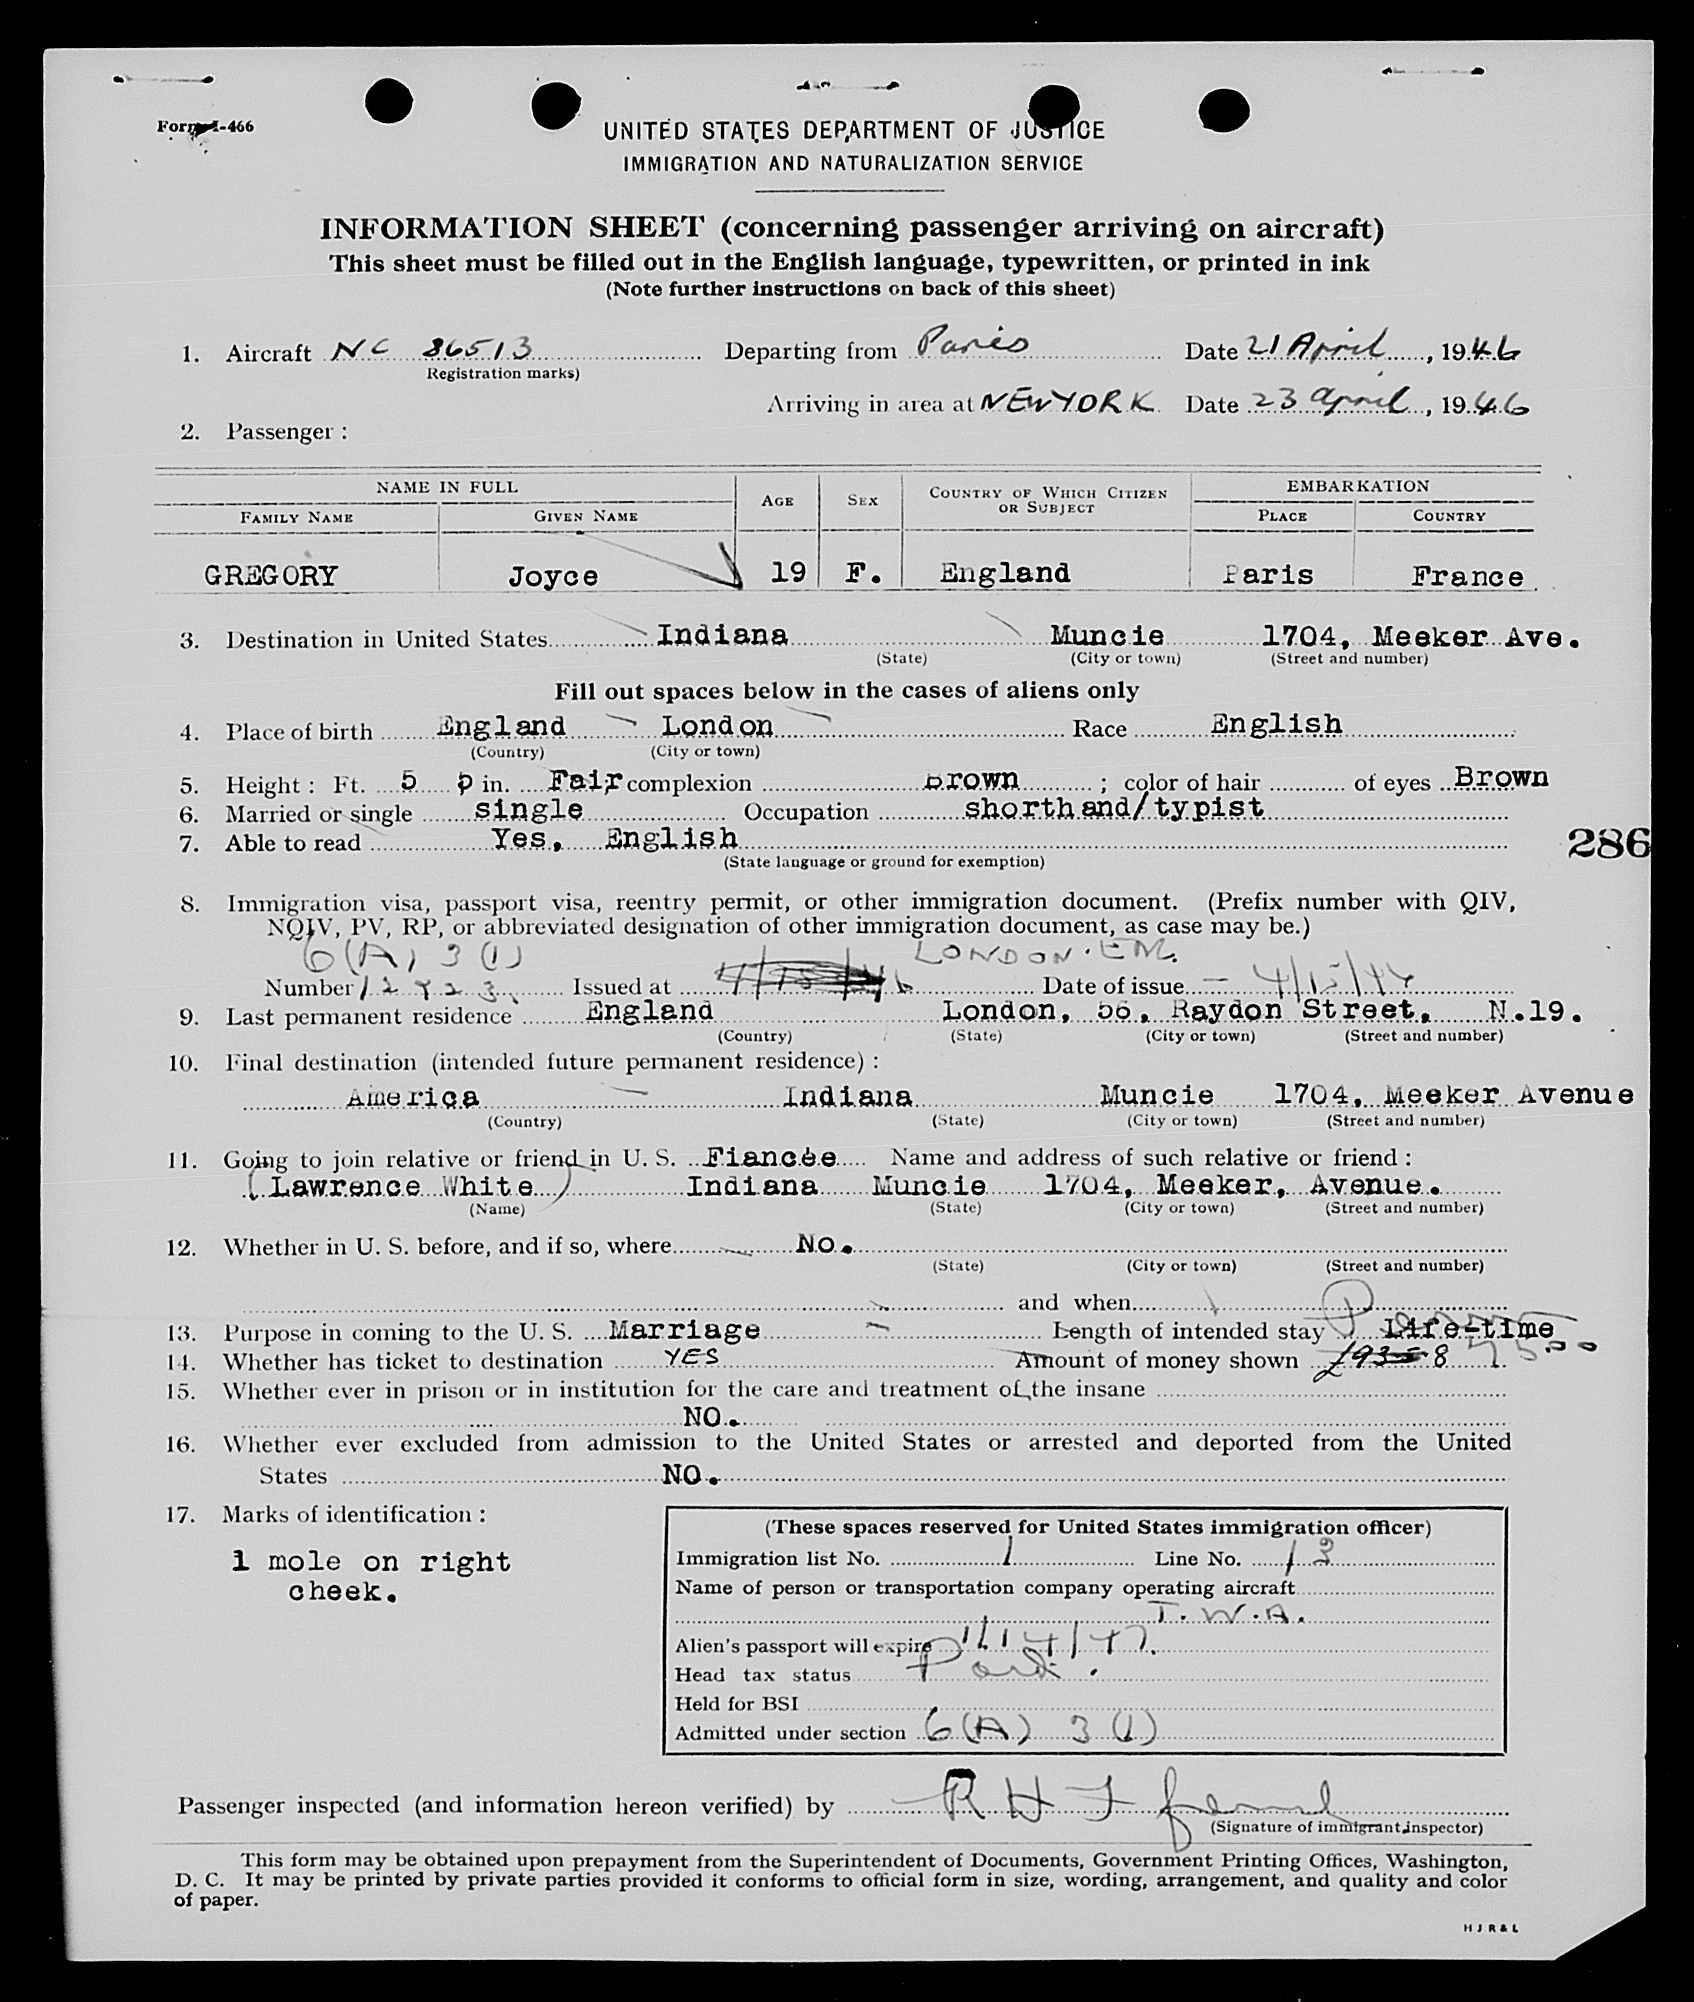 Form I-466
UNITED STATES DEPARTMENT OF JUSTICE
IMMIGRATION AND NATURALIZATION SERVICE
INFORMATION SHEET (concerning passenger arriving on aircraft)
This sheet must be filled out in the English language, typewritten, or printed in ink
(Note further instructions on back of this sheet)
1. Aircraft NC 86513 Departing from Paris Date 21 April, 1946
Registration marks)
Arriving in area at NEW YORK Date 23 April, 1946
2. Passenger :
NAME IN FULL AGE SEX COUNTRY OF WHICH CITIZEN OR SUBJECT EMBARKATION
FAMILY NAME GIVEN NAME PLACE COUNTRY
GREGORY Joyce 19 F. England Paris France
3. Destination in United States Indiana Muncie 1704, Meeker Ave.
(State) (City or town) (Street and number)
Fill out spaces below in the cases of aliens only
4. Place of birth England London Race English
(Country) (City or town)
5. Height : Ft. 5 in. Fair complexion Brown ; color of hair of eyes Brown
6. Married or single single Occupation shorthand/typist
7. Able to read Yes, English
(State language or ground for exemption)
286
8. Immigration visa, passport visa, reentry permit, or other immigration document. (Prefix number with QIV,
NQIV, PV, RP, or abbreviated designation of other immigration document, as case may be.)
6(A) 3(1) LONDON. EM.
Number Issued at Date of issue 4/15/46
9. Last permanent residence England London, 56, Raydon Street, N.19.
(Country) (State) (City or town) (Street and number)
10. Final destination (intended future permanent residence) :
America Indiana Muncie 1704, Meeker Avenue
(Country) (State) (City or town) (Street and number)
11. Going to join relative or friend in U. S. Fiancée Name and address of such relative or friend :
(Lawrence White) Indiana Muncie 1704, Meeker, Avenue.
(Name) (State) (City or town) (Street and number)
12. Whether in U. S. before, and if so, where No.
(State) (City or town) (Street and number)
and when
13. Purpose in coming to the U. S. Marriage Length of intended stay Life-time
14. Whether has ticket to destination YES Amount of money shown
15. Whether ever in prison or in institution for the care and treatment of the insane
NO.
16. Whether ever excluded from admission to the United States or arrested and deported from the United
States NO.
17. Marks of identification :
1 mole on right
cheek.
(These spaces reserved for United States immigration officer)
Immigration list No. 1 Line No.
Name of person or transportation company operating aircraft
T.W.A.
Alien's passport will expire
Head tax status
Held for BSI
Admitted under section 6(A) 3(1)
Passenger inspected (and information hereon verified) by
(Signature of immigrant inspector)
This form may be obtained upon prepayment from the Superintendent of Documents, Government Printing Offices, Washington,
D. C. It may be printed by private parties provided it conforms to official form in size, wording, arrangement, and quality and color
of paper.
H J R & L